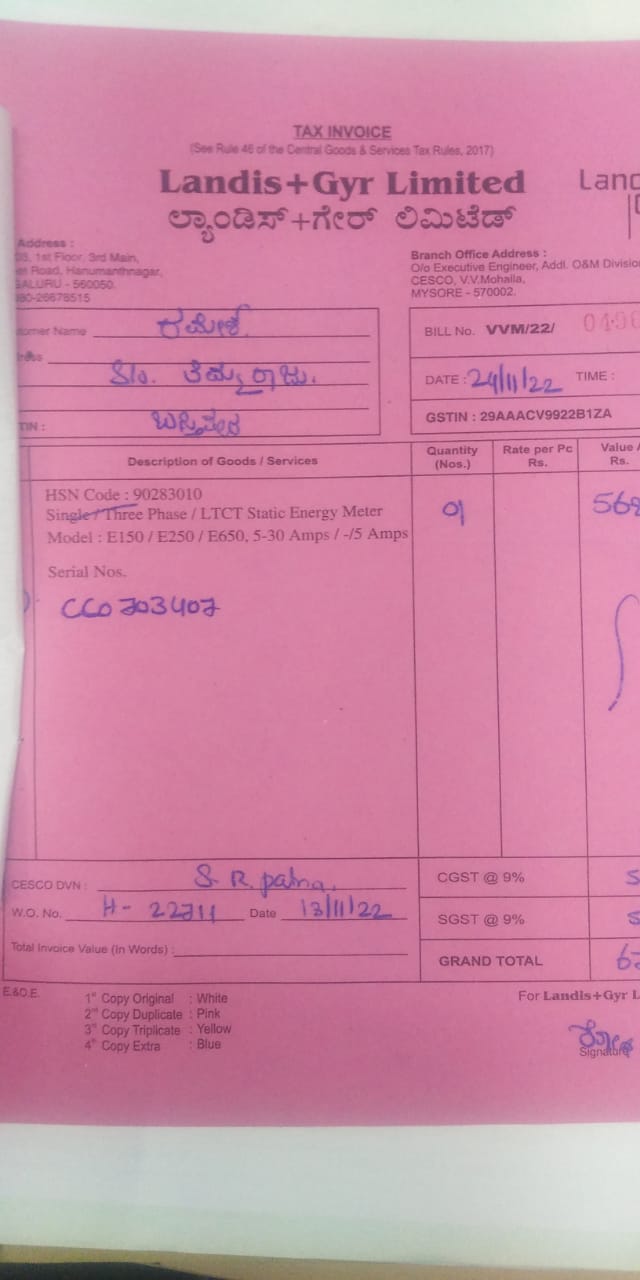 TAX INVOICE
(See Rule 46 of the Central Goods & Services Tax Rules, 2017)
Landis+Gyr Limited
Land
ಲ್ಯಾಂಡಿಸ್+ಗೇರ್ ಲಿಮಿಟೆಡ್
Address :
1st Floor, 3rd Main,
Road, Hanumanthnagar,
ALURU - 560050.
080-26678515
Branch Office Address :
O/o Executive Engineer, Addl. O&M Division
CESCO, V.V.Mohalla,
MYSORE - 570002.
tomer Name ರಮೇಶ್
S/o. ತಿಮ್ಮರಾಜು.
TIN :
BILL No. VVM/22/
DATE : 24/11/22 TIME :
GSTIN : 29AAACV9922B1ZA
Description of Goods / Services
Quantity (Nos.)
Rate per Pc Rs.
Value Rs.
HSN Code : 90283010
Single / Three Phase / LTCT Static Energy Meter
Model : E150 / E250 / E650, 5-30 Amps / -/5 Amps
01
568
Serial Nos.
CC0703407
CESCO DVN : S. R. patna.
W.O. No. H- 22711 Date 13/11/22
Total Invoice Value (In Words) :
CGST @ 9%
SGST @ 9%
GRAND TOTAL
E.&O.E.
1st Copy Original : White
2nd Copy Duplicate : Pink
3rd Copy Triplicate : Yellow
4th Copy Extra : Blue
For Landis+Gyr L
Signature